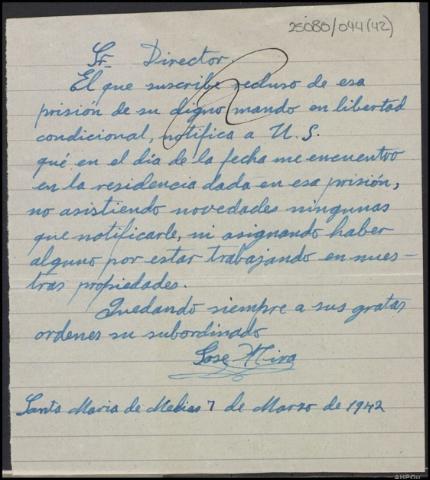 25080/044(42)
Sr. Director
El que suscribe recluso de esa
prisión de su digno mando en libertad
condicional, notifica a U. S.
qué en el día de la fecha me encuentro
en la residencia dada en esa prisión,
no asistiendo novedades ningunas
que notificarle, ni asignando haber
alguno por estar trabajando en nues-
tras propiedades.
Quedando siempre a sus gratas
ordenes su subordinado
Jose Mira
Santa Maria de 7 de Marzo de 1942